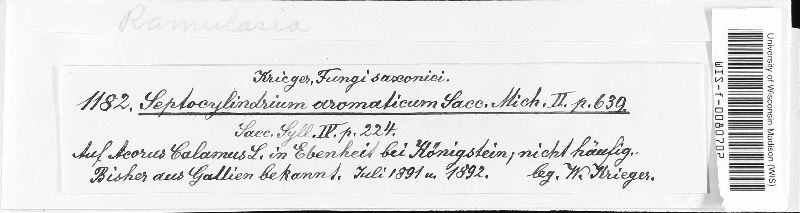 Ramularia
Krieger, Fungi saxonici.
1182. Septocylindrium aromaticum Sacc. Mich. II. p. 639
Sacc. Syll. IV. p. 224.
Auf Acorus Calamus L. in Ebenheit bei Königstein; nicht häufig.
Bisher aus Gallien bekannt. Juli 1891 u. 1892. leg. W. Krieger.
University of Wisconsin Madison (WIS)
WIS-f-0080702